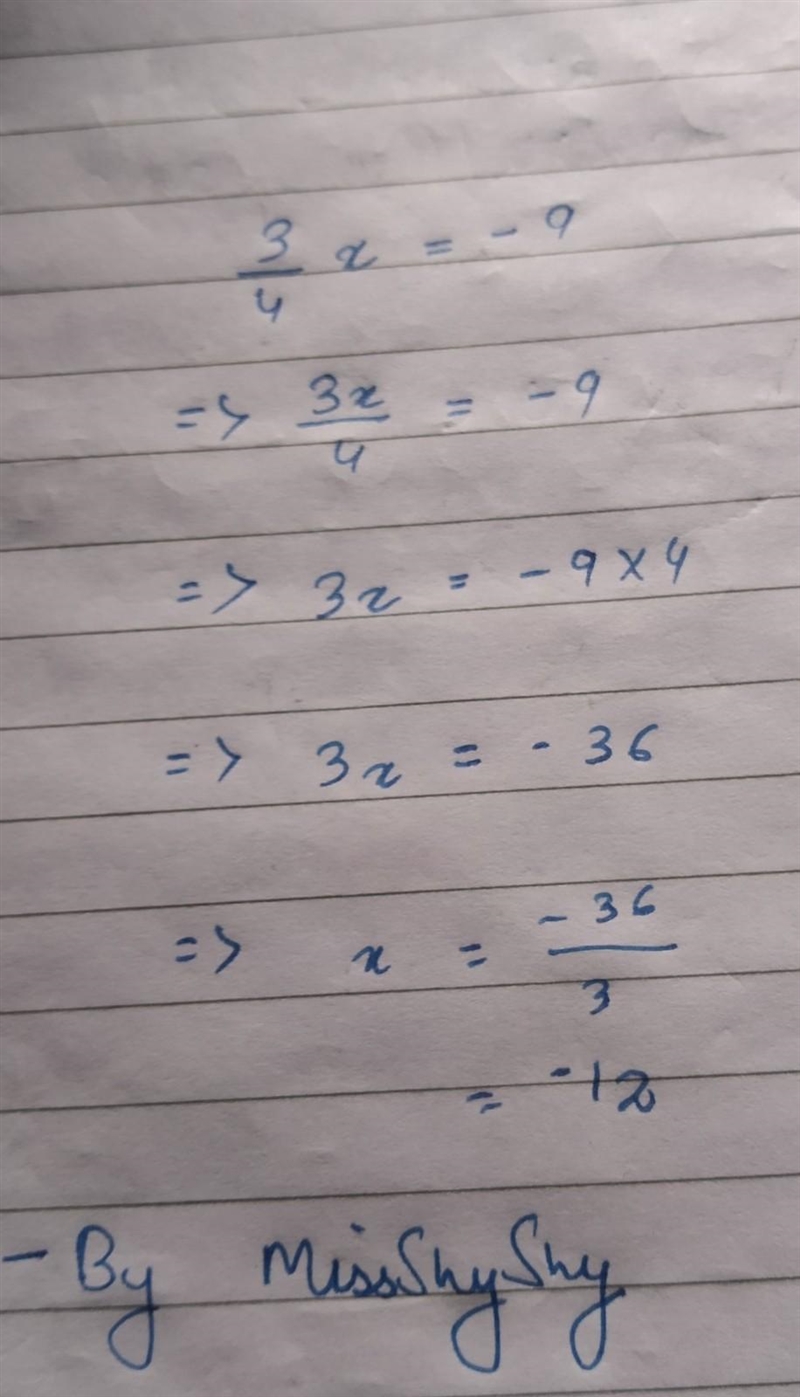 3/4 x = - 9
=> 3x/4 = - 9
=> 3x = - 9 × 4
=> 3x = - 36
=> x = - 36/3
= -12
- By MissShyShy